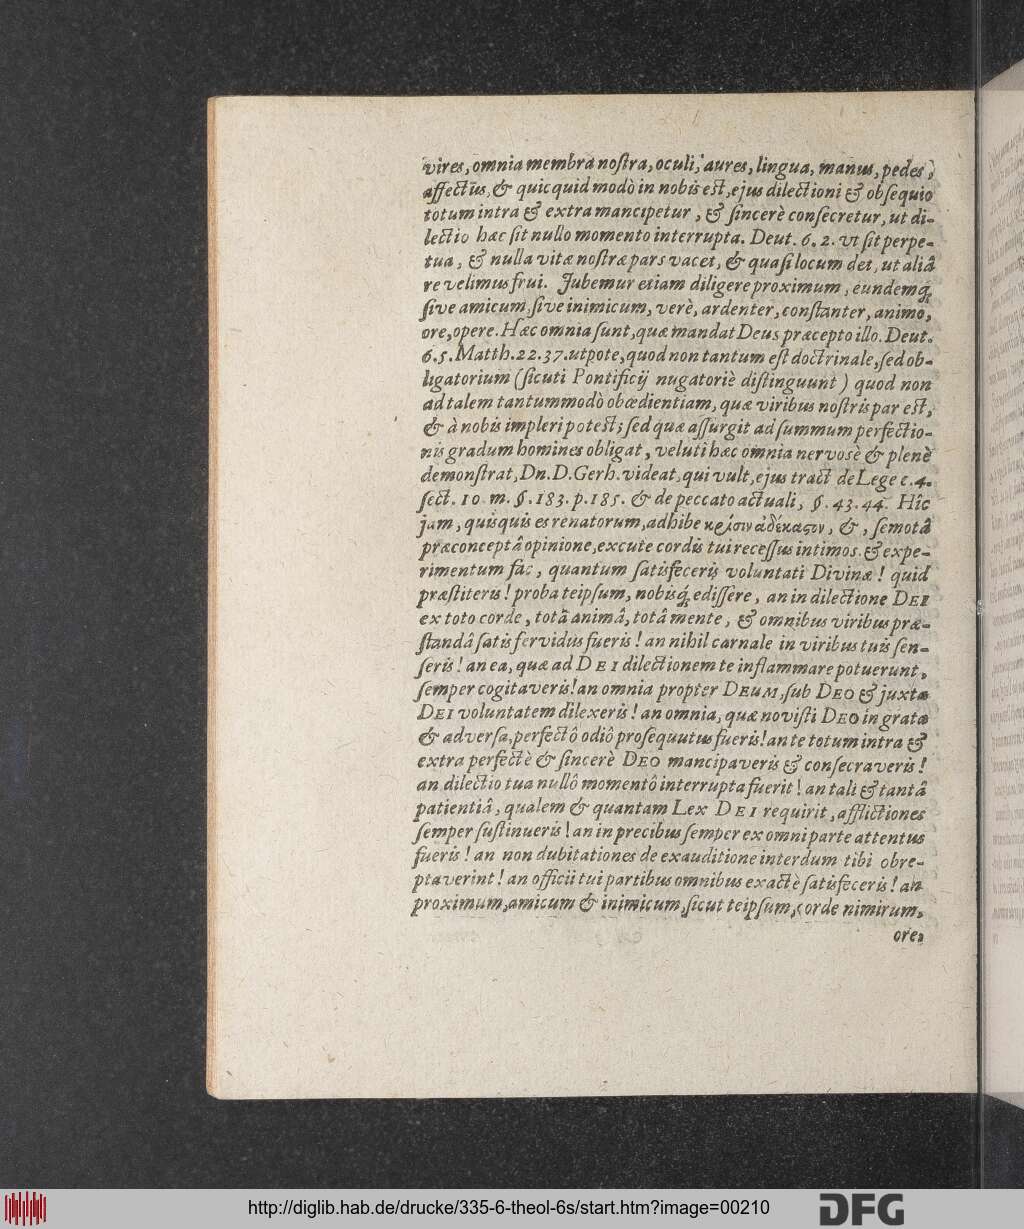 vires, omnia membra noſtra, oculi, aures, lingua, manus, pedes,
affectus, & quicquid modò in nobis eſt, ejus dilectioni & obſequio
totum intra & extra mancipetur, & ſincerè conſecretur, ut di-
lectio hæc ſit nullo momento interrupta. Deut. 6. 2. ut ſit perpe-
tua, & nulla vitæ noſtræ pars vacet, & quaſi locum det, ut aliâ
re velimus frui. Jubemur etiam diligere proximum, eundemq́;
ſive amicum, ſive inimicum, verè, ardenter, conſtanter, animo,
ore, opere. Hæc omnia ſunt, quæ mandat Deus præcepto illo. Deut.
6. 5. Matth. 22. 37. utpote, quod non tantum eſt doctrinale, ſed ob-
ligatorium (ſicuti Pontificij nugatoriè diſtinguunt) quod non
ad talem tantummodò obœdientiam, quæ viribus noſtris par eſt,
& à nobis impleri poteſt; ſed quæ aſſurgit ad ſummum perfectio-
nis gradum homines obligat, veluti hæc omnia nervosè & plenè
demonſtrat, Dn. D. Gerh. videat, qui vult, ejus tract de Lege c. 4.
ſect. 10. m. §. 183. p. 185. & de peccato actuali, §. 43. 44. Hîc
jam, quisquis es renatorum, adhibe κρίσιν ἀδέκαςιν, &, ſemotâ
præconceptâ opinione, excute cordis tui receſſus intimos & expe-
rimentum fac, quantum ſatisfeceris voluntati Divinæ! quid
præſtiteris! proba teipſum, nobisq́; ediſſere, an in dilectione DEI
ex toto corde, totâ animâ, totâ mente, & omnibus viribus præ-
ſtandâ ſatis fervidus fueris! an nihil carnale in viribus tuis ſen-
ſeris! an ea, quæ ad DEI dilectionem te inflammare potuerunt,
ſemper cogitaveris! an omnia propter DEUM, ſub DEO & juxta
DEI voluntatem dilexeris! an omnia, quæ noviſti DEO ingrata
& adverſa, perfectô odiô proſequutus fueris! an te totum intra &
extra perfectè & ſincerè DEO mancipaveris & conſecraveris!
an dilectio tua nullô momentô interrupta fuerit! an tali & tantâ
patientiâ, qualem & quantam Lex DEI requirit, afflictiones
ſemper ſuſtinueris! an in precibus ſemper ex omni parte attentus
fueris! an non dubitationes de exauditione interdum tibi obre-
ptaverint! an officii tui partibus omnibus exactè ſatisfeceris! an
proximum, amicum & inimicum, ſicut teipſum, corde nimirum,
ore,
http://diglib.hab.de/drucke/335-6-theol-6s/start.htm?image=00210
DFG